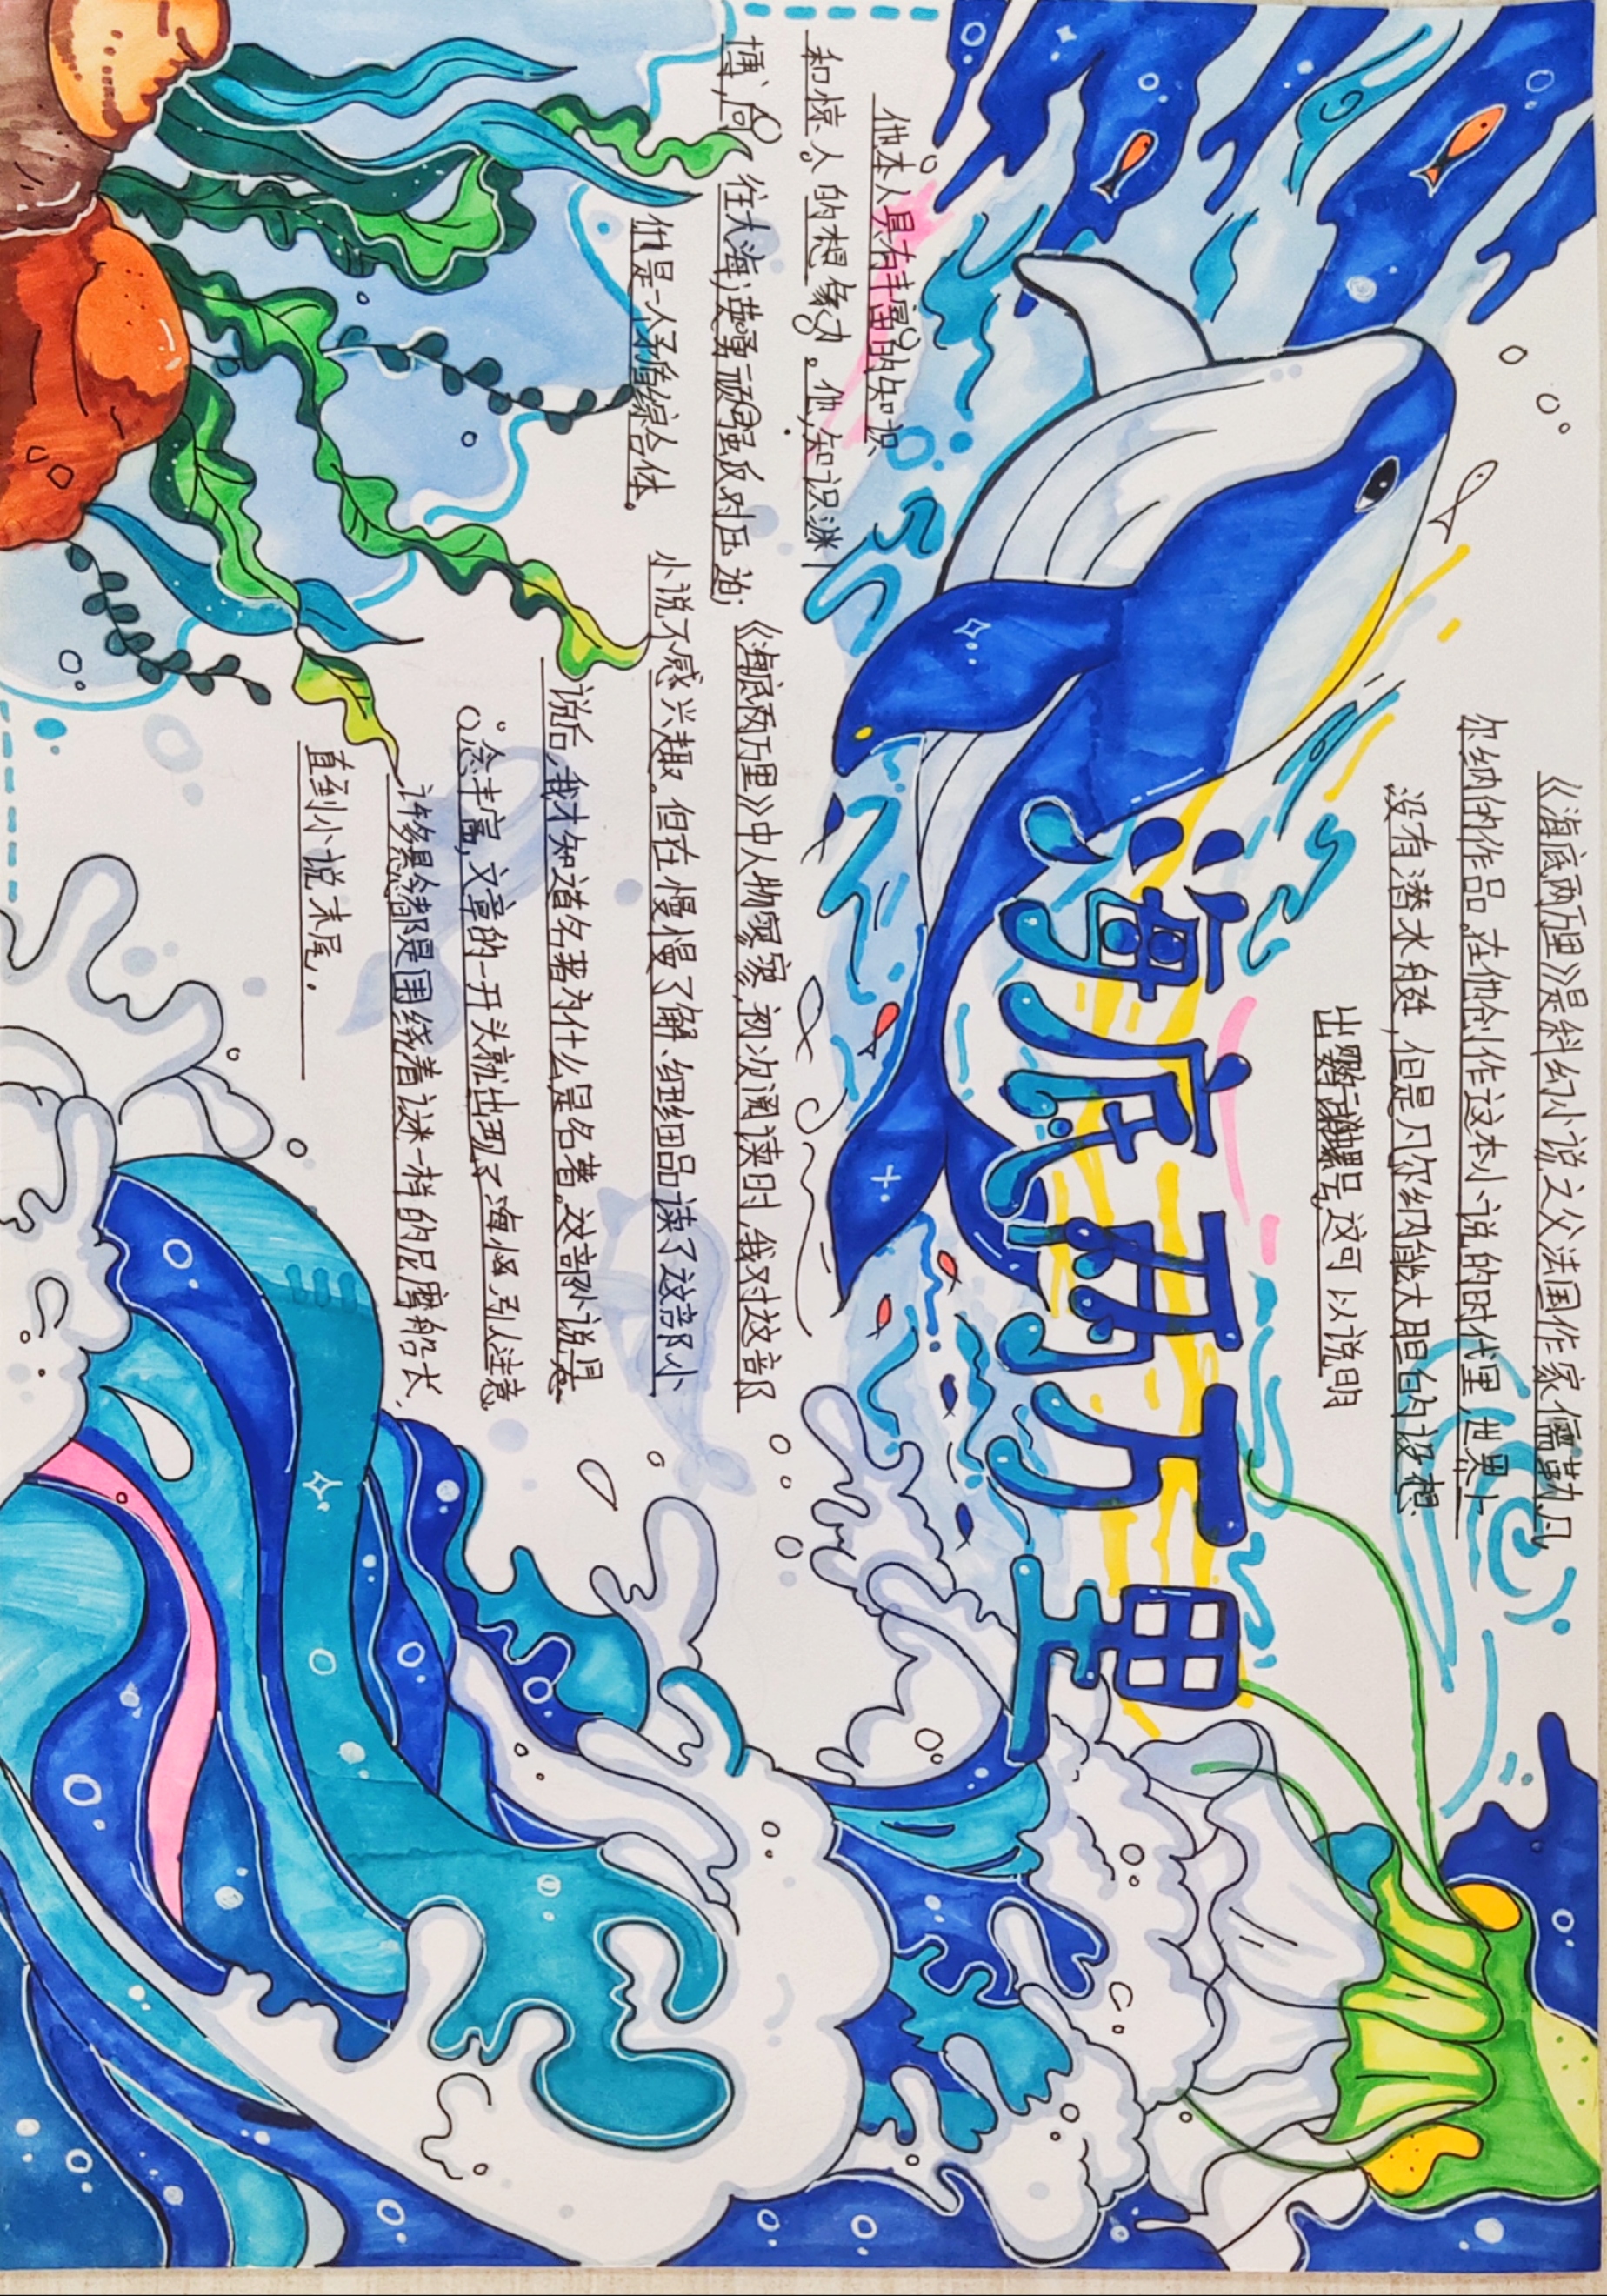 海底两万里
《海底两万里》是科幻小说之父法国作家儒勒凡
尔纳的作品。在他创作这本小说的时代里,世界上
没有潜水艇,但是凡尔纳能大胆的设想
出鹦鹉螺号,这可以说明
他本人具有丰富的知识
和惊人的想象力。他,知识渊
博,向往大海,英勇顽强反对压迫;
他是一个矛盾综合体。
《海底两万里》中人物寥寥,初次阅读时,我对这部
小说不感兴趣。但在慢慢了解、细细品读了这部小
说后,我才知道名著为什么是名著。这部小说悬
念丰富,文章的一开头就出现了海怪引人注意
许多悬念都是围绕着谜一样的尼摩船长,
直到小说末尾.